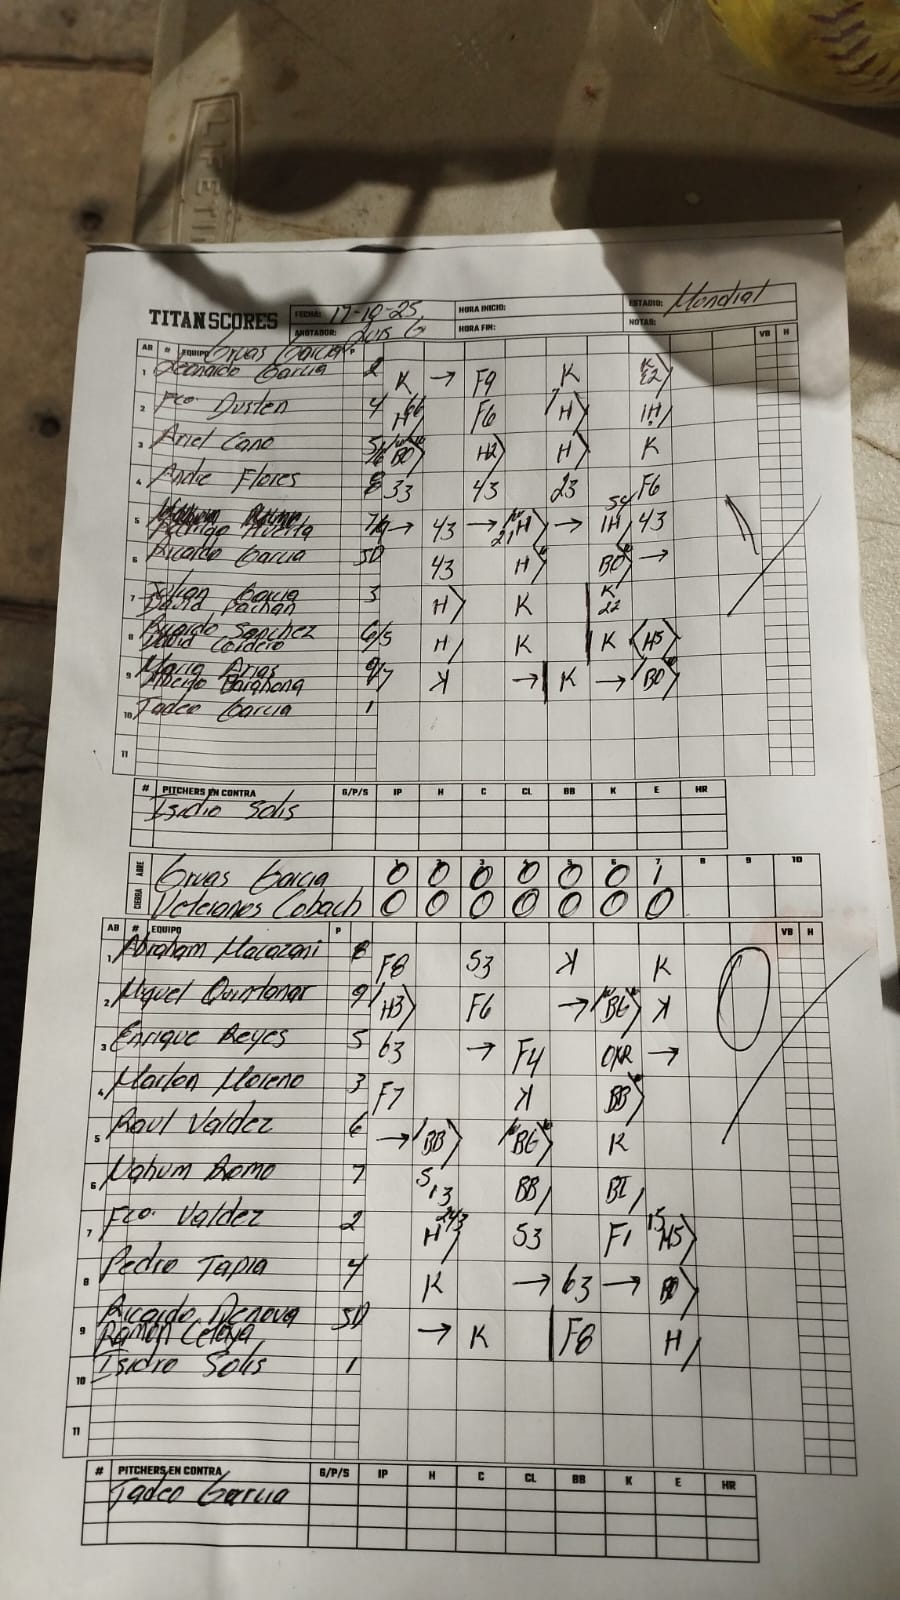 LIFETI
TITANSCORES FECHA: 17-10-25 HORA INICIO: ESTADIO: Mondial
ANOTADOR: Luis G HORA FIN: NOTAS:
AB # EQUIPO Gruas Garcia P VB H
1 Leonardo Garcia 2 K → F9 K K E2
2 Fco. Dusten 4 H F6 H IH
3 Ariel Cano BO H2 H K
4 Andre Flores 8 33 43 23 F6
5 Rodrigo Huerta 7/9 → 43 → IH → IH 43
6 Ricardo Garcia SD 43 H BO →
7 Julian Garcia 3 H K K
David Pachan 22
8 Ricardo Sanchez 6/5 H K K H5
David Cordero
9 Mario Arias 9/7 K → K → BO
Barahona
10 Tadeo Garcia 1
11
# PITCHERS EN CONTRA G/P/S IP H C CL BB K E HR
Isidio Solis
ABRE Gruas Garcia 0 0 0 0 0 0 1 8 9 10
CIERRA Veteranos Cobach 0 0 0 0 0 0 0
AB # EQUIPO P VB H
1 Abraham Macazani 8 F8 53 K K 0
2 Miguel Quintanar 9 H3 F6 → BG K
3 Enrique Reyes 5 63 → F4 OKR →
4 Marlon Moreno 3 F7 K BB
5 Raul Valdez 6 → BB BG K
6 Nahum Romo 7 5 13 BB BI
7 Fco. Valdez 2 H 243 53 F1 15 H5
8 Pedro Tapia 4 K → 63 →
9 Ricardo Denova SD → K F8 H
Ramon Celaya
10 Isidro Solis 1
11
# PITCHERS EN CONTRA G/P/S IP H C CL BB K E HR
Tadeo Garcia